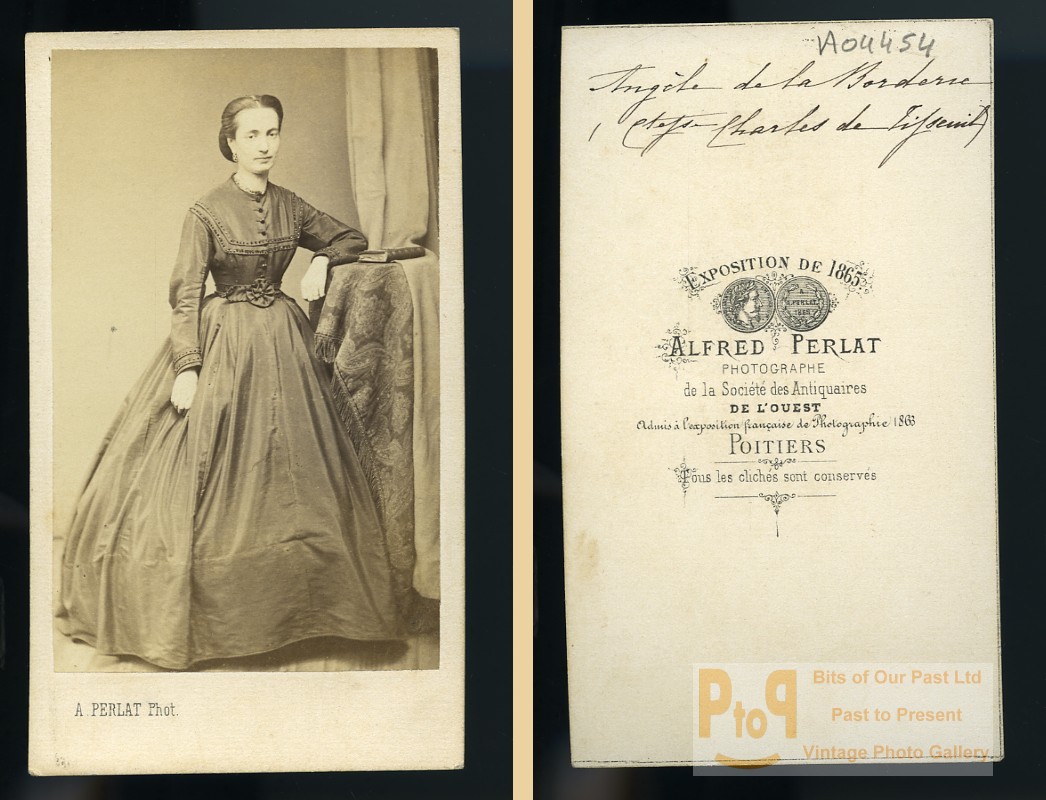 A. PERLAT Phot.
A04454
Angèle de la Borderie
Charles de
EXPOSITION DE 1865
A. PERLAT
1865
ALFRED PERLAT
PHOTOGRAPHE
de la Société des Antiquaires
DE L'OUEST
Admis à l'exposition française de Photographie 1863
POITIERS
Tous les clichés sont conservés
PtoP
Bits of Our Past Ltd
Past to Present
Vintage Photo Gallery